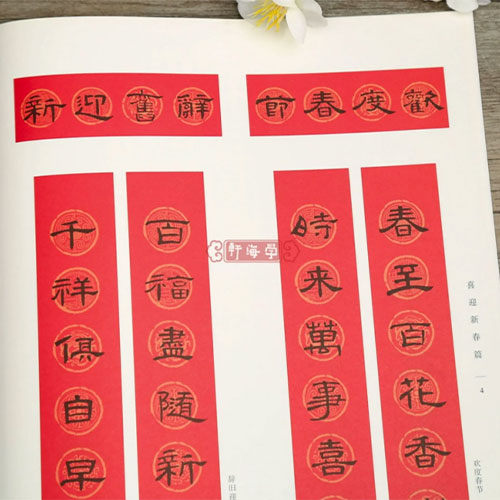 歡度春節
春至百花香
時來萬事喜
辭舊迎新
百福盡隨新
千祥俱自早
喜迎新春篇
4
欢度春节
辞旧迎
学海軒